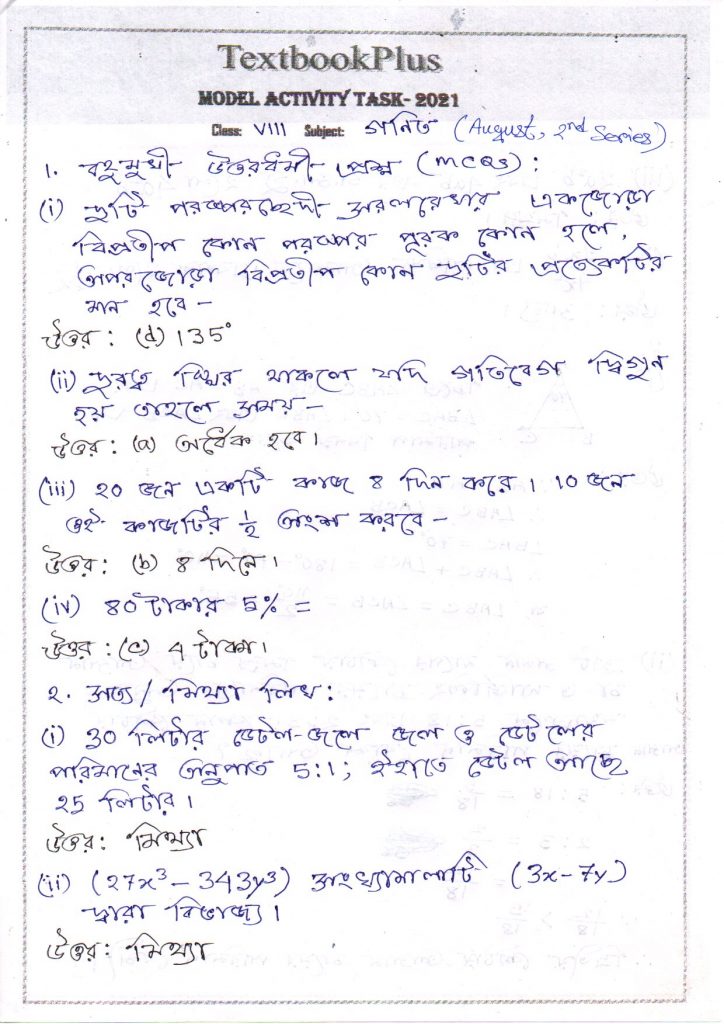 TextbookPlus
MODEL ACTIVITY TASK- 2021
Class: VIII Subject: গনিত (August, 2nd Series)
১. বহুমুখী উত্তরধর্মী প্রশ্ন (MCQs) :
(i) দুটি পরস্পরচ্ছেদী সরলরেখার একজোড়া
বিপ্রতীপ কোন পরস্পর পূরক কোন হলে,
অপরজোড়া বিপ্রতীপ কোন দুটির প্রত্যেকটির
মান হবে –
উত্তর : (d) 135°
(ii) দুরত্ব স্থির থাকলে যদি গতিবেগ দ্বিগুন
হয় তাহলে সময় –
উত্তর : (a) অর্ধেক হবে।
(iii) ২০ জনে একটি কাজ ৪ দিন করে। 10 জনে
ওই কাজটির ½ অংশ করবে –
উত্তর: (b) ৪ দিনে।
(iv) 80 টাকার 5% =
উত্তর : (c) 4 টাকা।
২. সত্য / মিথ্যা লিখ :
(i) 30 লিটার ডেটল-জলে জল ও ডেটলের
পরিমানের অনুপাত 5:1; ইহাতে ডেটল আছে
২5 লিটার।
উত্তর: মিথ্যা
(ii) (27x³ – 343y³) সংখ্যামালাটি (3x-7y)
দ্বারা বিভাজ্য।
উত্তর: মিথ্যা